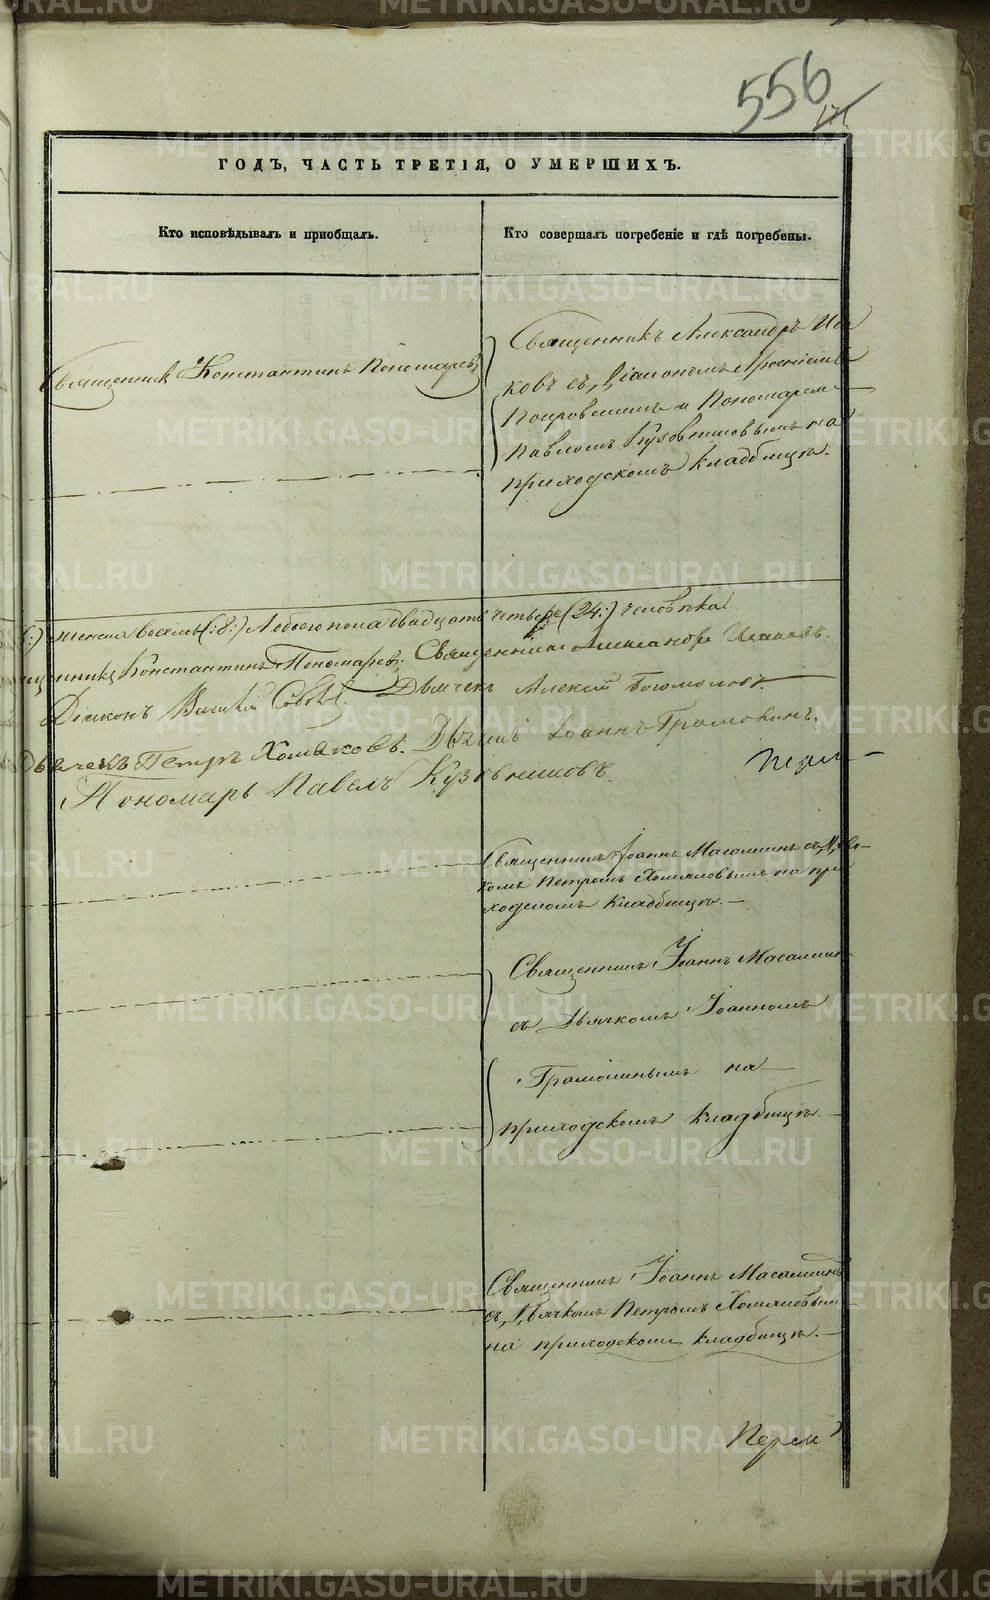 556
ГОДЪ, ЧАСТЬ ТРЕТІЯ, О УМЕРШИХЪ.
Кто исповѣдывалъ и пріобщалъ.
Кто совершалъ погребеніе и гдѣ погребены.
Священникъ Константинъ Пономаревъ
Священникъ Александръ Иса
ковъ съ Діакономъ
и Пономаремъ
Павломъ Кузовниковымъ на
приходскомъ кладбищѣ.
женска восемь (:8:) А обоего пола двадцать четыре (24:) человѣка.
щенникъ Константинъ Пономаревъ. Священникъ Александръ Исаковъ.
Діаконъ Дьячекъ Алексѣй Богомоловъ.
Дьячекъ Петръ Хомяковъ. Дьячекъ Іоаннъ Грамолинъ.
Пономарь Павелъ Кузовниковъ.
Священникъ Іоаннъ Масалкинъ съ Дьяч-
комъ Петромъ Хомяковымъ на при
ходскомъ кладбищѣ.
Священникъ Іоаннъ Масалкинъ
съ Дьячкомъ Іоанномъ
Грамолинымъ на
приходскомъ кладбищѣ.
Священникъ Іоаннъ Масалкинъ
съ Дьячкомъ Петромъ Хомяковым
на приходскомъ кладбищѣ.
METRIKI.GASO-URAL.RU